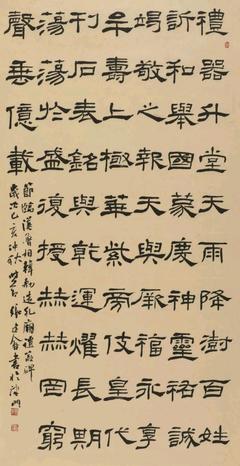 禮器升堂天雨降澍百姓
訢和舉國蒙慶神靈祐誠
竭敬之報天與厥福永享
牟壽上極華紫旁伎皇代
刊石表銘與乾運燿長期
蕩蕩於盛復授赫赫罔窮
聲垂億載
節臨漢魯相韓勑造孔廟禮器碑
歲次己亥仲秋書於